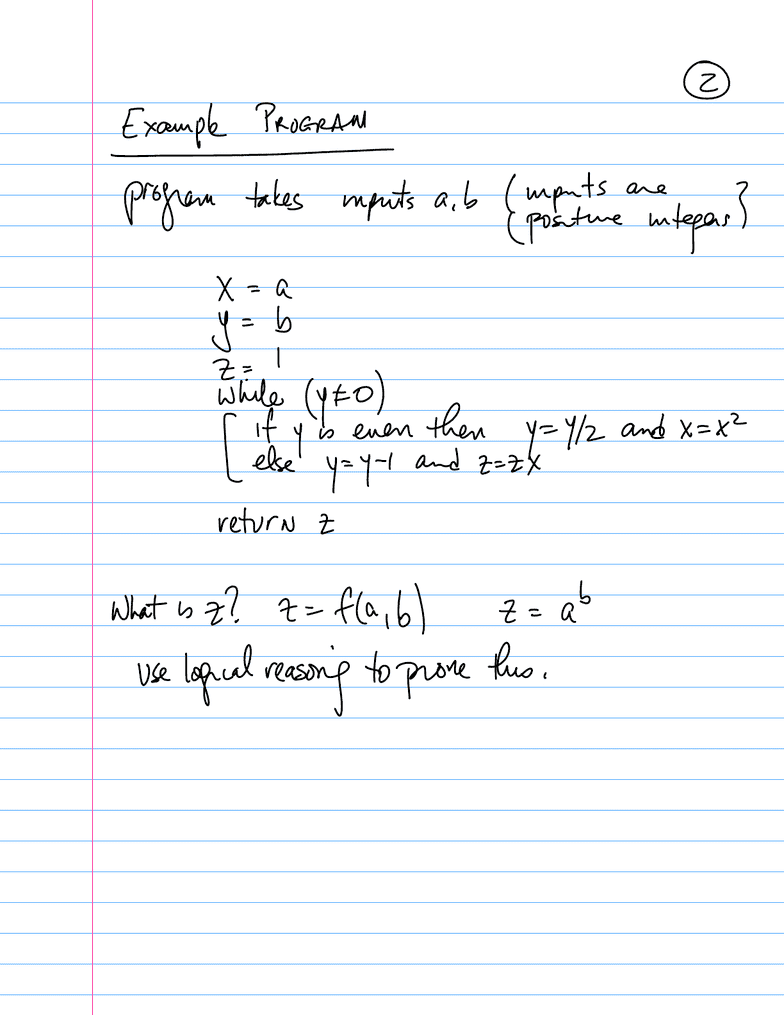 2
Example PROGRAM
program takes inputs a,b { inputs are
positive integers }
x = a
y = b
z = 1
while (y≠0)
[ if y is even then y=y/2 and x=x²
else y=y-1 and z=zx
return z
What is z? z = f(a,b) z = aᵇ
Use logical reasoning to prove this.